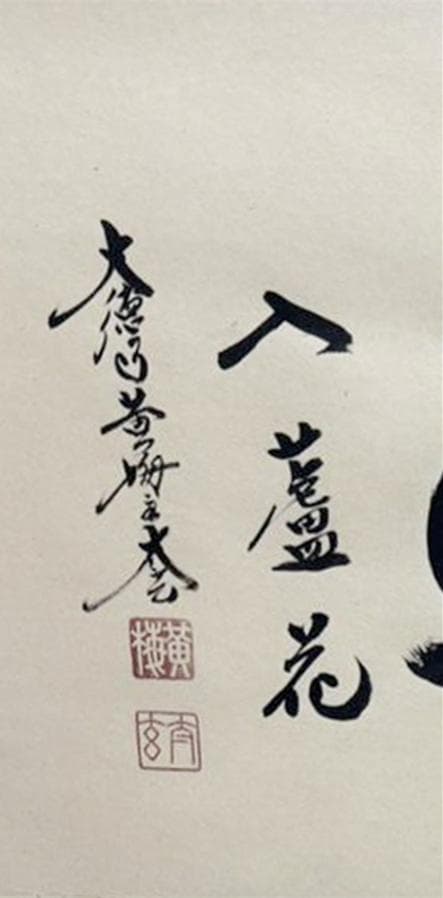 入蘆花
大徳 黄梅主太玄
黄梅
太玄